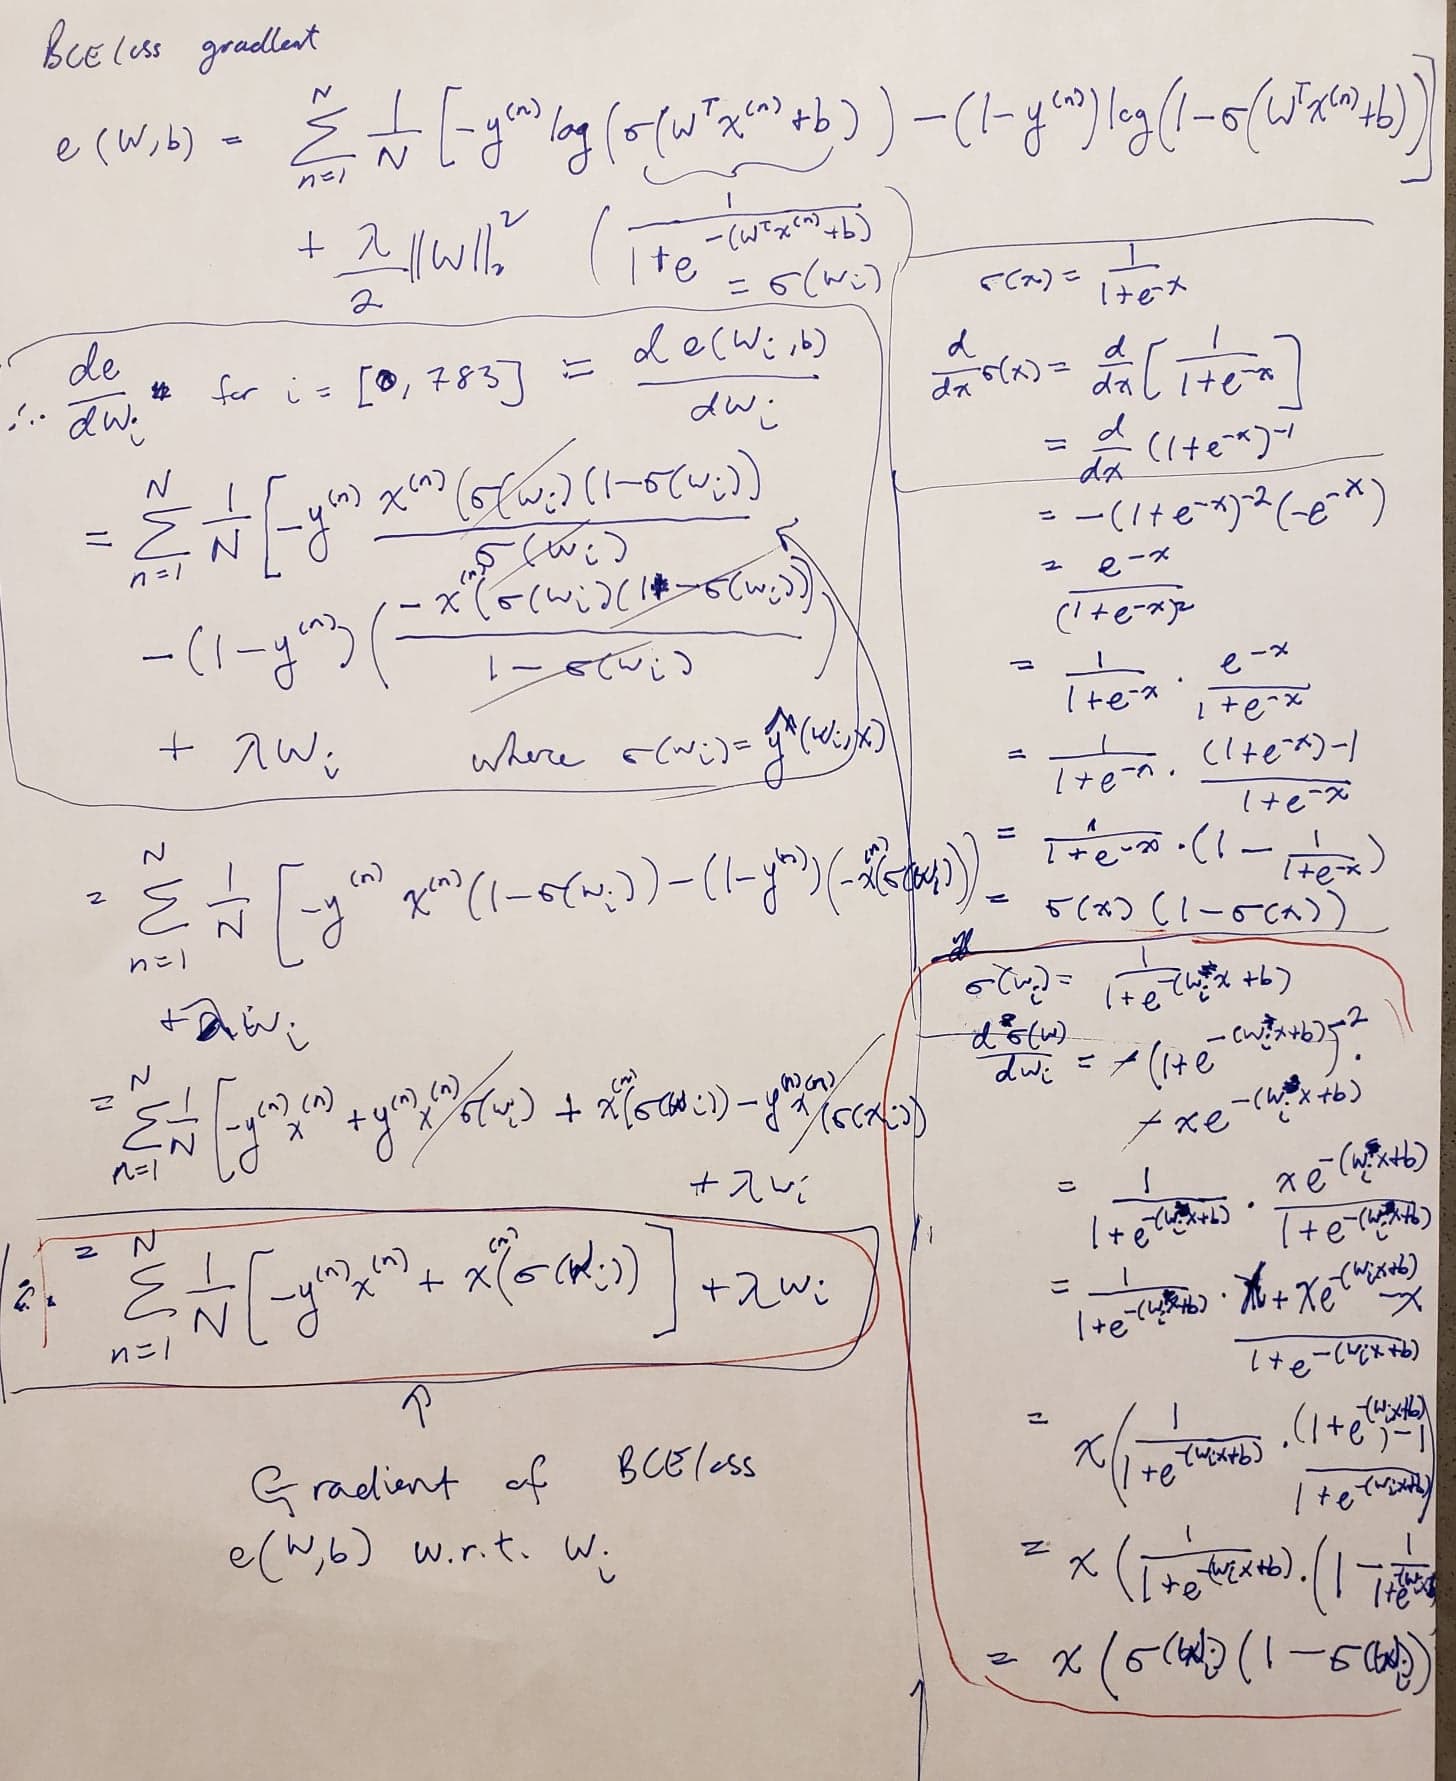 BCE loss gradient
e(W,b) = \sum_{n=1}^{N} \frac{1}{N} [-y^{(n)} log(σ(W^T x^{(n)}+b)) - (1-y^{(n)}) log(1-σ(W^T x^{(n)}+b))]
+ \frac{λ}{2} ||W||_2^2 ( \frac{1}{1+e^{-(W^T x^{(n)}+b)}}
= σ(w_i)
∴ \frac{de}{dw_i} for i = [0, 783] = \frac{d e(W_i,b)}{dw_i}
= \sum_{n=1}^{N} \frac{1}{N} [-y^{(n)} \frac{x^{(n)}(σ(w_i)(1-σ(w_i))}{σ(w_i)}
-(1-y^{(n)}) ( \frac{-x^{(n)}(σ(w_i)(1-σ(w_i))}{1-σ(w_i)} )
+ λw_i where σ(w_i) = ŷ(w_i,x)
= \sum_{n=1}^{N} \frac{1}{N} [-y^{(n)} x^{(n)}(1-σ(w_i)) - (1-y^{(n)})(-x^{(n)}(σ(w_i)))
+ λw_i
= \sum_{n=1}^{N} \frac{1}{N} [-y^{(n)}x^{(n)} + y^{(n)}x^{(n)}σ(w_i) + x^{(n)}(σ(w_i)) - y^{(n)}x^{(n)}(σ(x_i))
+ λw_i
∴ = \sum_{n=1}^{N} \frac{1}{N} [-y^{(n)}x^{(n)} + x^{(n)}(σ(w_i))] + λw_i
↑
Gradient of BCE loss
e(W,b) w.r.t. w_i
σ(x) = \frac{1}{1+e^{-x}}
\frac{d}{dx}σ(x) = \frac{d}{dx} [\frac{1}{1+e^{-x}}]
= \frac{d}{dx} (1+e^{-x})^{-1}
= -(1+e^{-x})^{-2}(-e^{-x})
= \frac{e^{-x}}{(1+e^{-x})^2}
= \frac{1}{1+e^{-x}} · \frac{e^{-x}}{1+e^{-x}}
= \frac{1}{1+e^{-x}} · \frac{(1+e^{-x})-1}{1+e^{-x}}
= \frac{1}{1+e^{-x}} · (1 - \frac{1}{1+e^{-x}})
= σ(x) (1-σ(x))
σ(w_i) = \frac{1}{1+e^{-(w_i x+b)}}
\frac{dσ(w)}{dw_i} = -(1+e^{-(w_i x+b)})^{-2} ·
-xe^{-(w_i x+b)}
= \frac{1}{1+e^{-(w_i x+b)}} · \frac{xe^{-(w_i x+b)}}{1+e^{-(w_i x+b)}}
= \frac{1}{1+e^{-(w_i x+b)}} · \frac{x+xe^{-(w_i x+b)}-x}{1+e^{-(w_i x+b)}}
= x( \frac{1}{1+e^{-(w_i x+b)}} · \frac{(1+e^{-(w_i x+b)})-1}{1+e^{-(w_i x+b)}}
= x ( \frac{1}{1+e^{-(w_i x+b)}} · (1 - \frac{1}{1+e^{-(w_i x+b)}}
= x (σ(w_i)(1-σ(w_i))